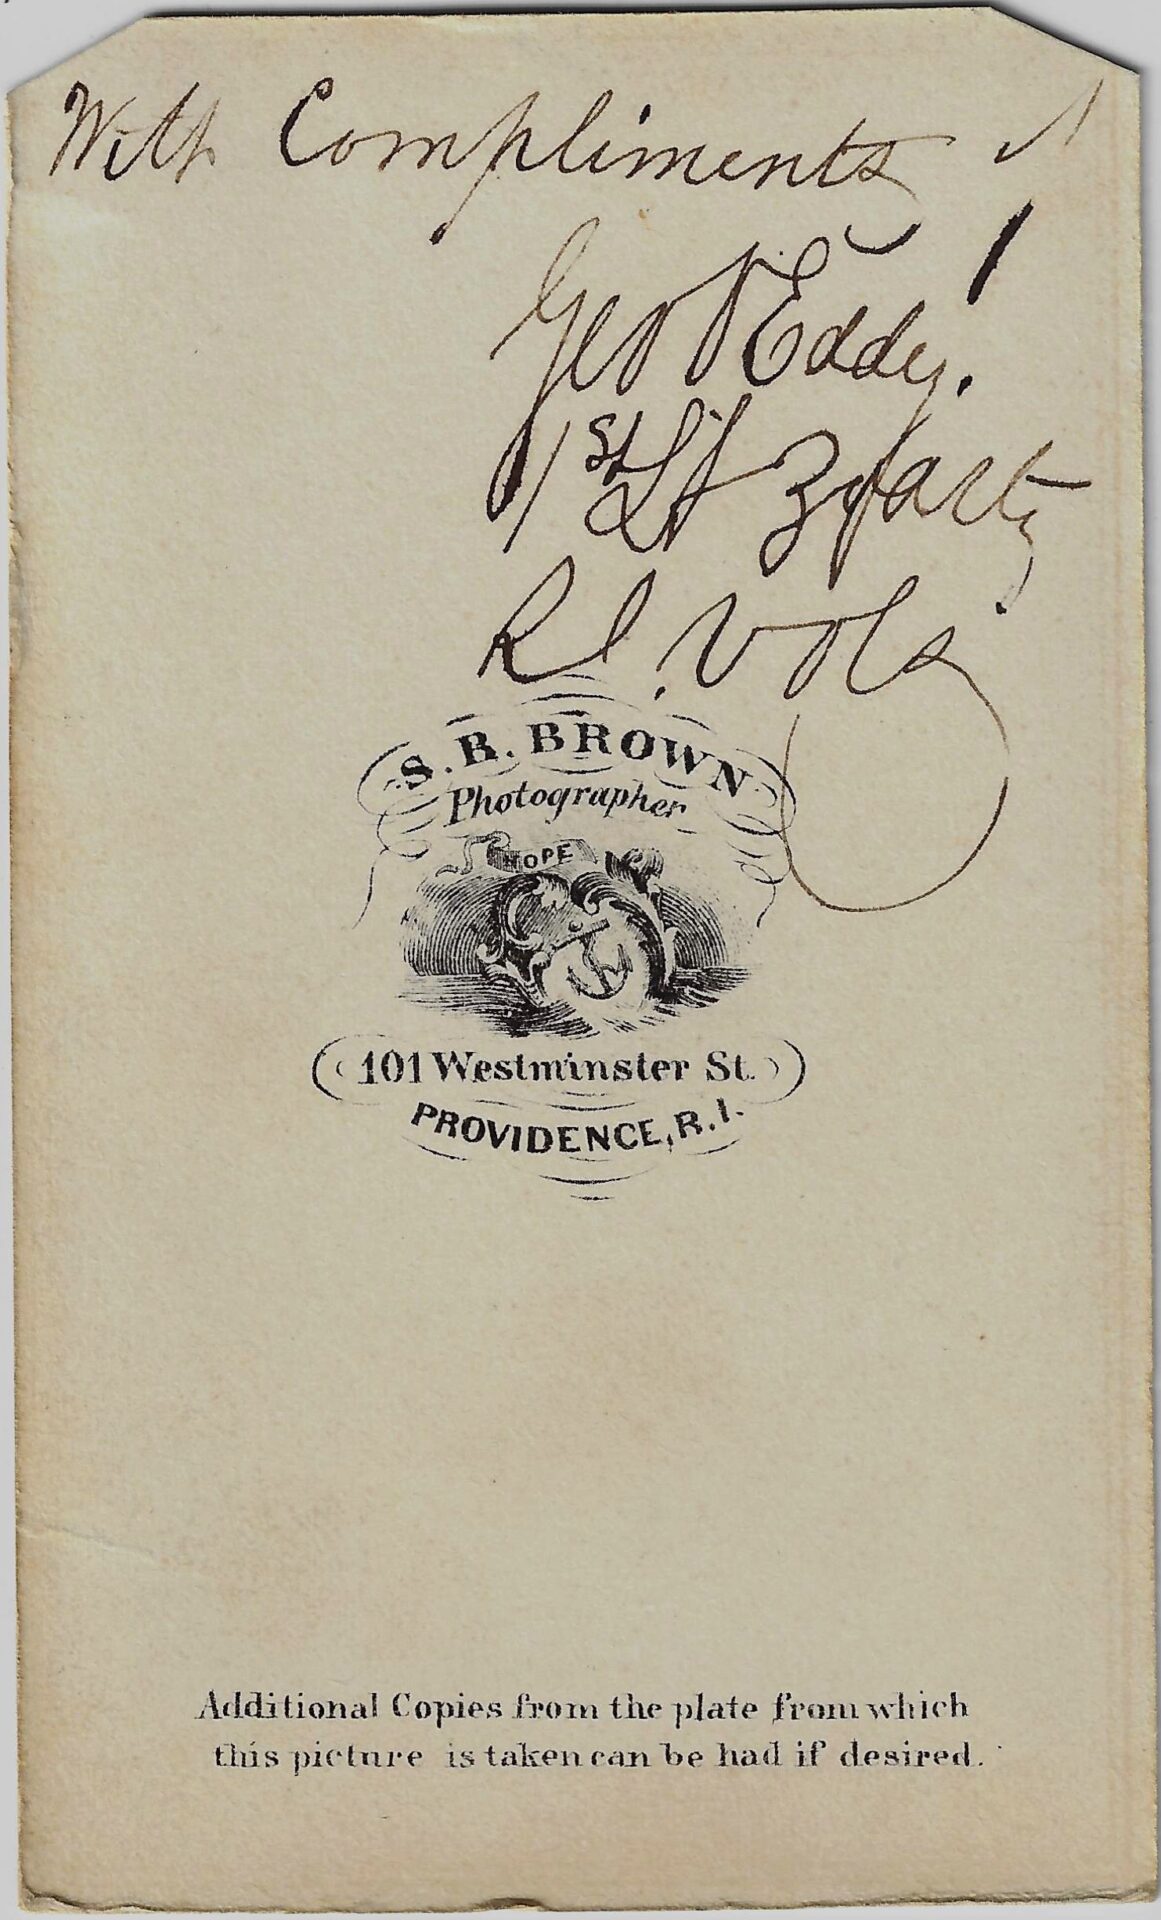 With Compliments of
Geo Eddy.
1st Lt 3d Arty
R I. Vols
S. B. BROWN
Photographer
HOPE
101 Westminster St.
PROVIDENCE, R.I.
Additional Copies from the plate from which
this picture is taken can be had if desired.